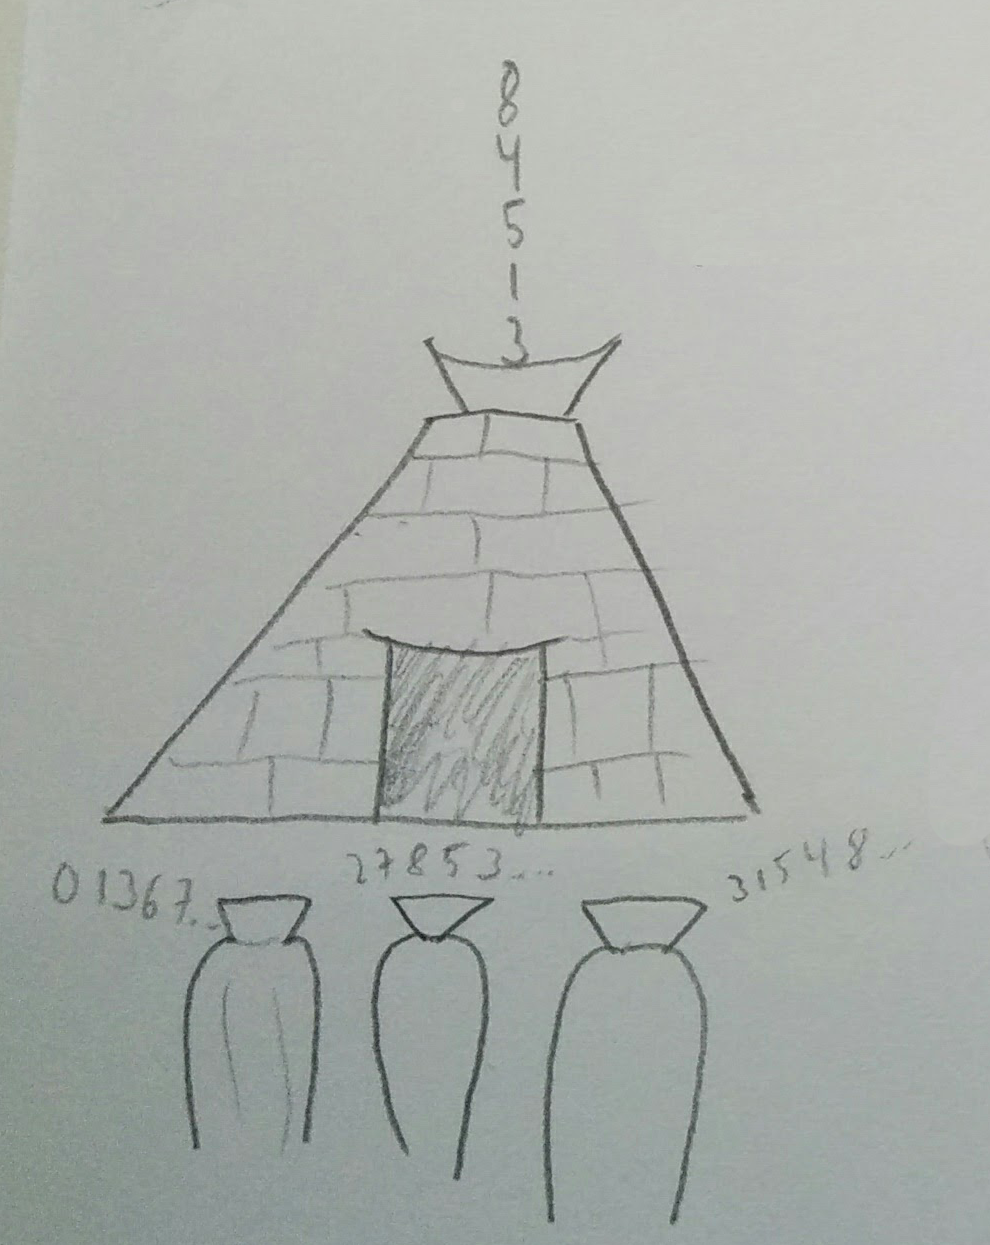 8
4
5
1
3
01367...
27853....
31548...